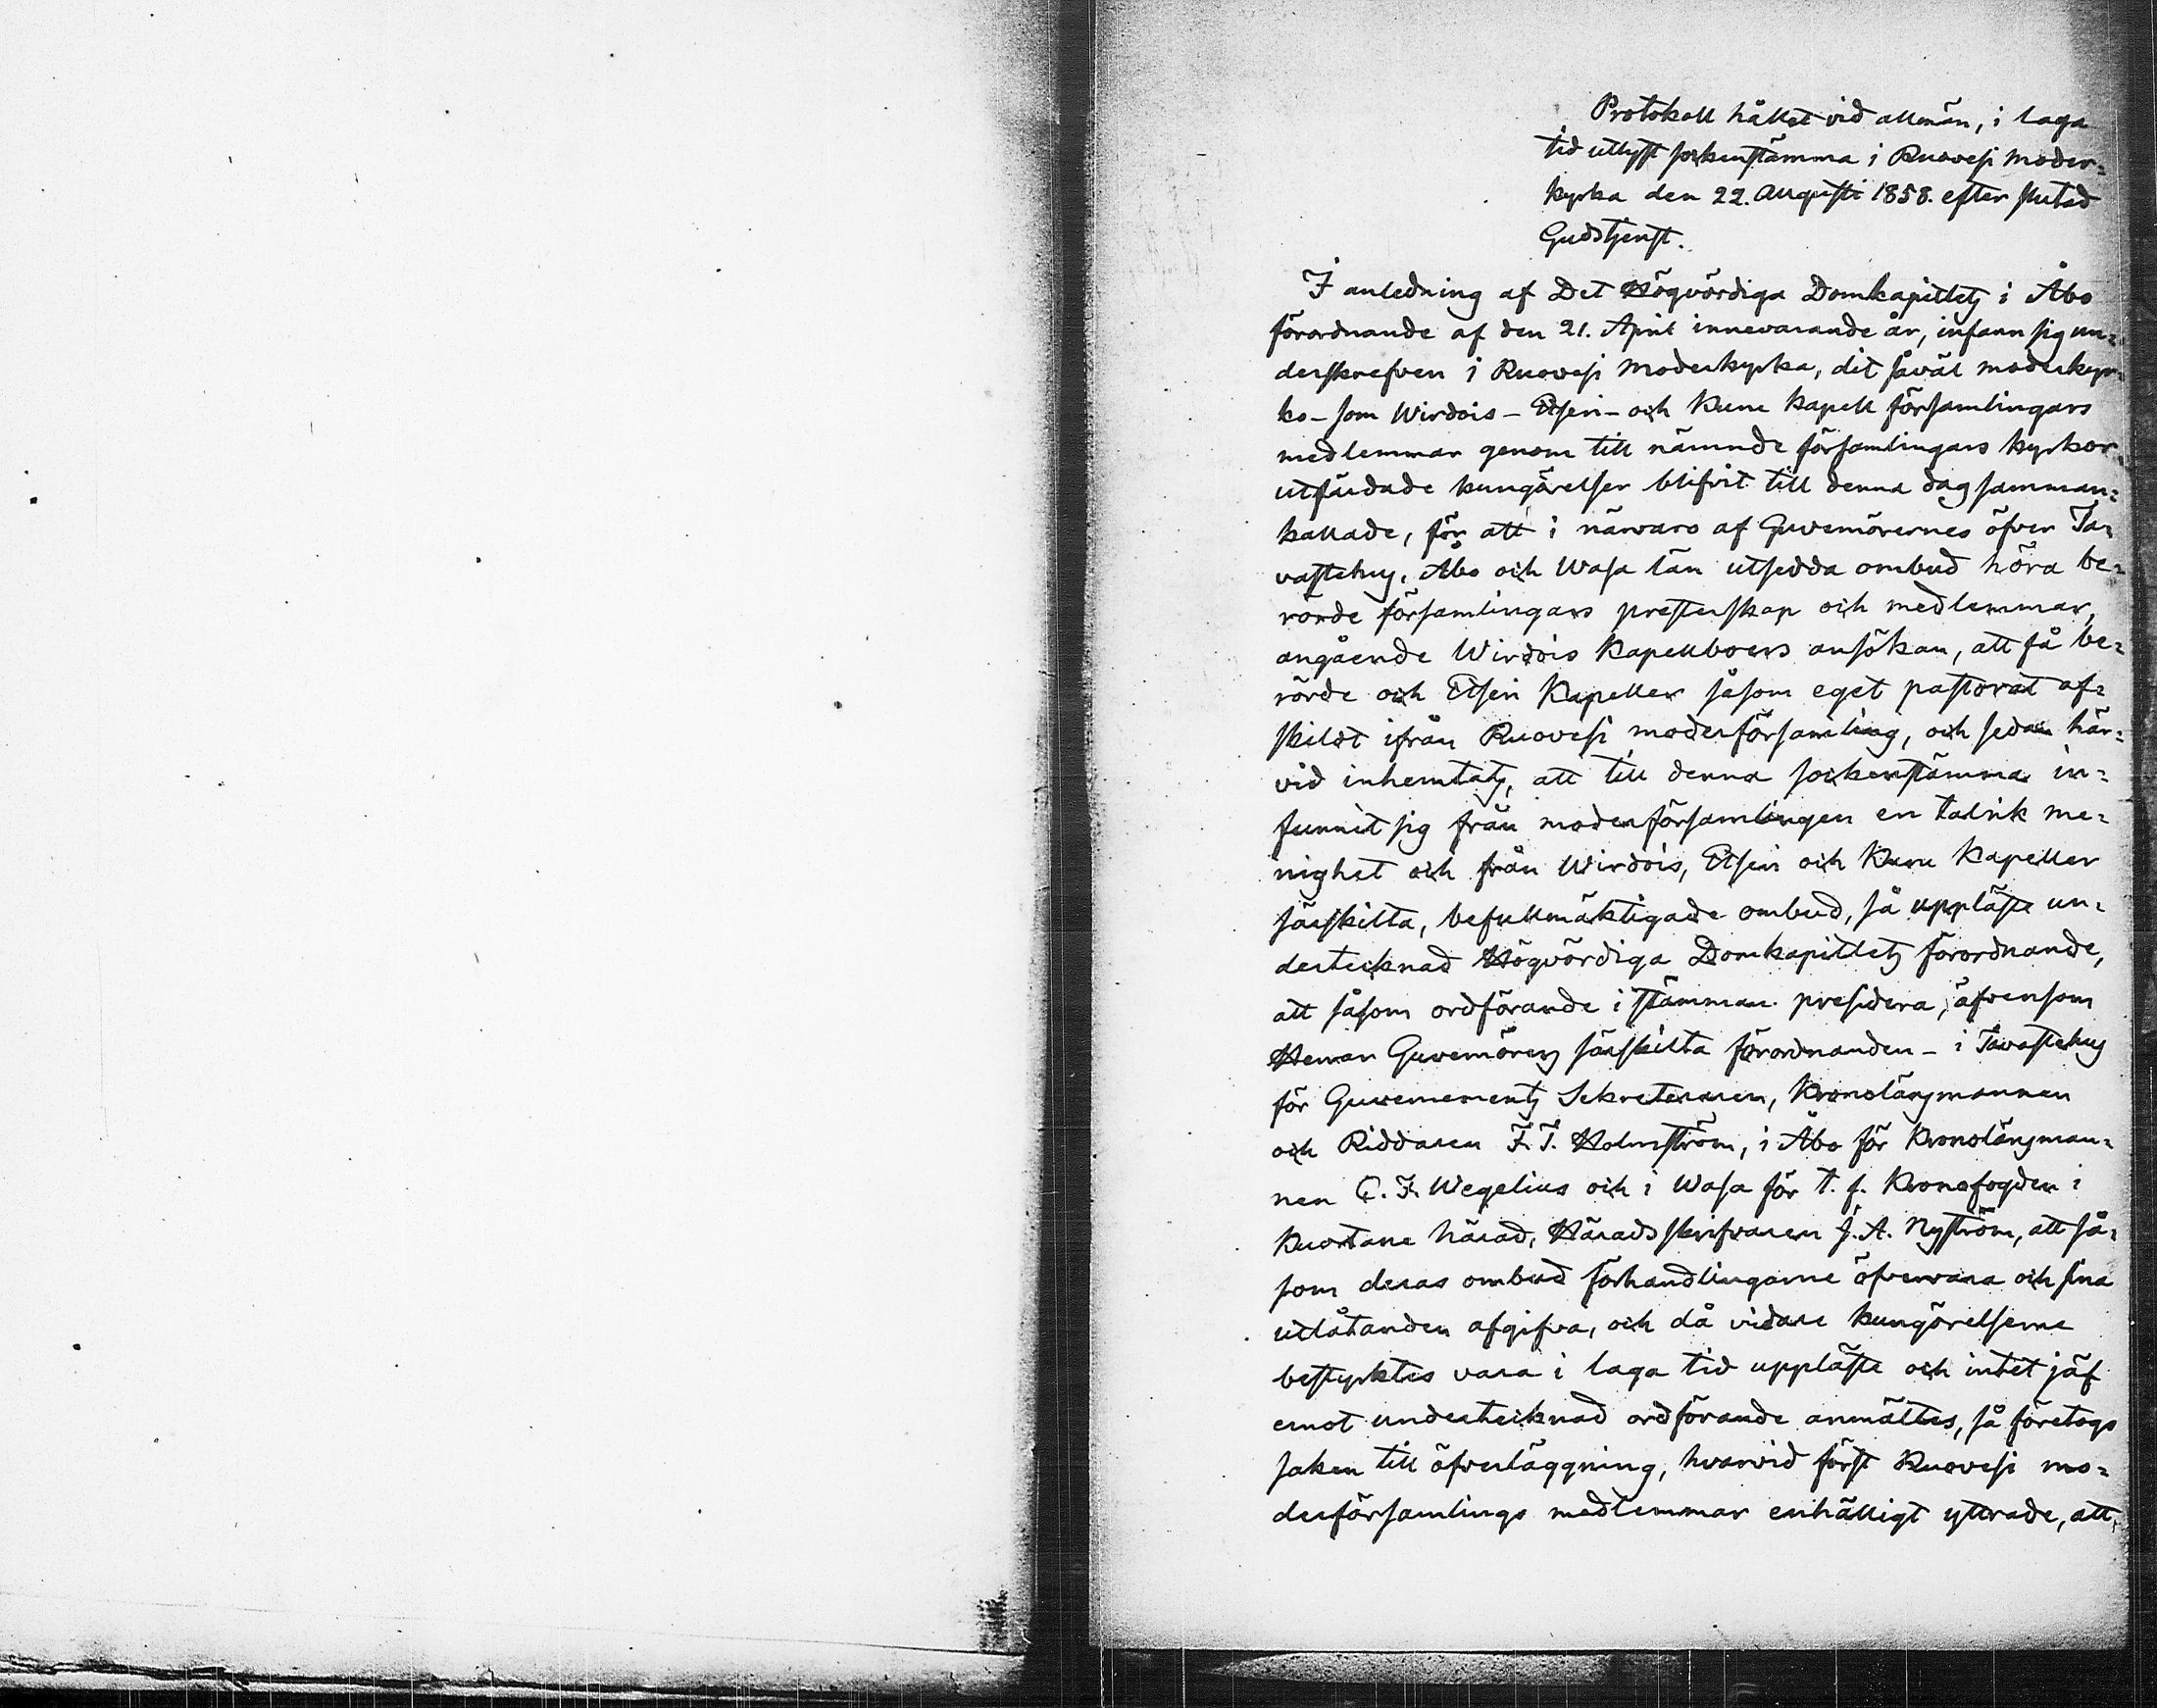 Protokoll hållet vid allmän, i laga
tid utlyst sockenstämma i Ruovesi moder=
kyrka den 22. Augusti 1858. efter slutad
Gudstjenst.
I anledning af Det Högvördiga Domkapitlets i Åbo
förordnande af den 21. April innevarande år, infann sig un=
derskrefven i Ruovesi moderkyrka, dit såväl moderkyr=
ko- som Wirdois- Etseri- och Kuru kapell församlingars
medlemmar genom till nämnde församlingars kyrkor
utfärdade kungörelser blifvit till denna dag samman=
kallade, för att i närvaro af Guvernörernes öfver Ta=
vastehus, Åbo och Wasa län utsedda ombud höra be=
rörde församlingars presterskap och medlemmar,
angående Wirdois Kapellboers ansökan, att få be=
rörde och Etseri Kapeller såsom eget pastorat af=
skildt ifrån Ruovesi moderförsamling, och sedan här=
vid inhemtats, att till denna sockenstämma in=
funnit sig från moderförsamlingen en talrik me=
nighet och från Wirdois, Etseri och Kuru Kapeller
särskilta, befullmäktigade ombud, så upplästе un=
dertecknad Högvördiga Domkapitlets förordnande,
att såsom ordförande i stämman presidera, äfvensom
Herrar Guvernörers särskilta förordnanden - i Tavastehus
för Guvernements Sekreteraren, Kronolänsmannen
och Riddaren F. T. Holmström, i Åbo för Kronolänsman=
nen C. F. Wegelius och i Wasa för t. f. Kronofogden i
Kuortane härad, Häradsskrifvaren J. A. Nyström, att så=
som deras ombud förhandlingarne öfvervara och sina
utlåtanden afgifva, och då vidare kungörelserne
bestyrktes vara i laga tid uppläste och intet jäf
emot undertecknad ordförande anmältes, så företogs
saken till öfverläggning, hvarvid först Ruovesi mo=
derförsamlings medlemmar enhälligt yttrade, att,